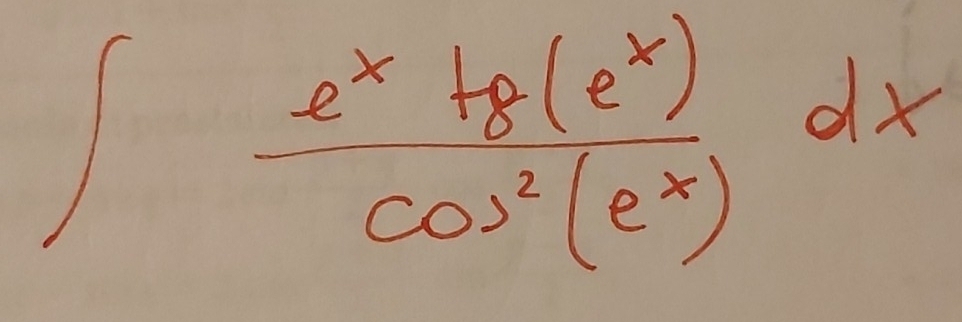 ∫ e^x tg(e^x) / cos²(e^x) dx